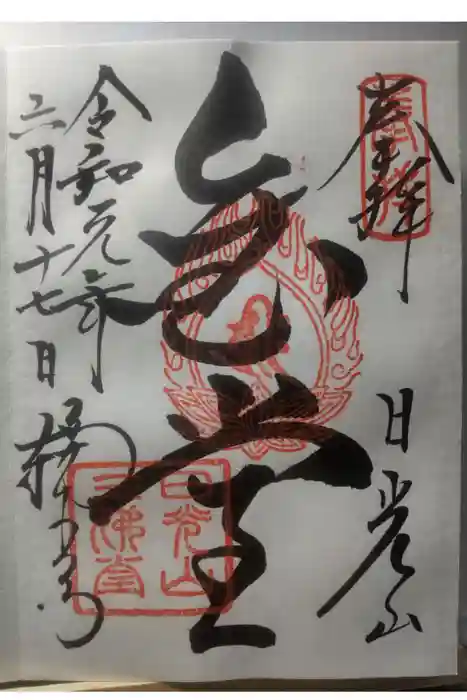 奉拝
日光山
堂
日光山
三佛堂
令和元年
六月十七日
輪王寺